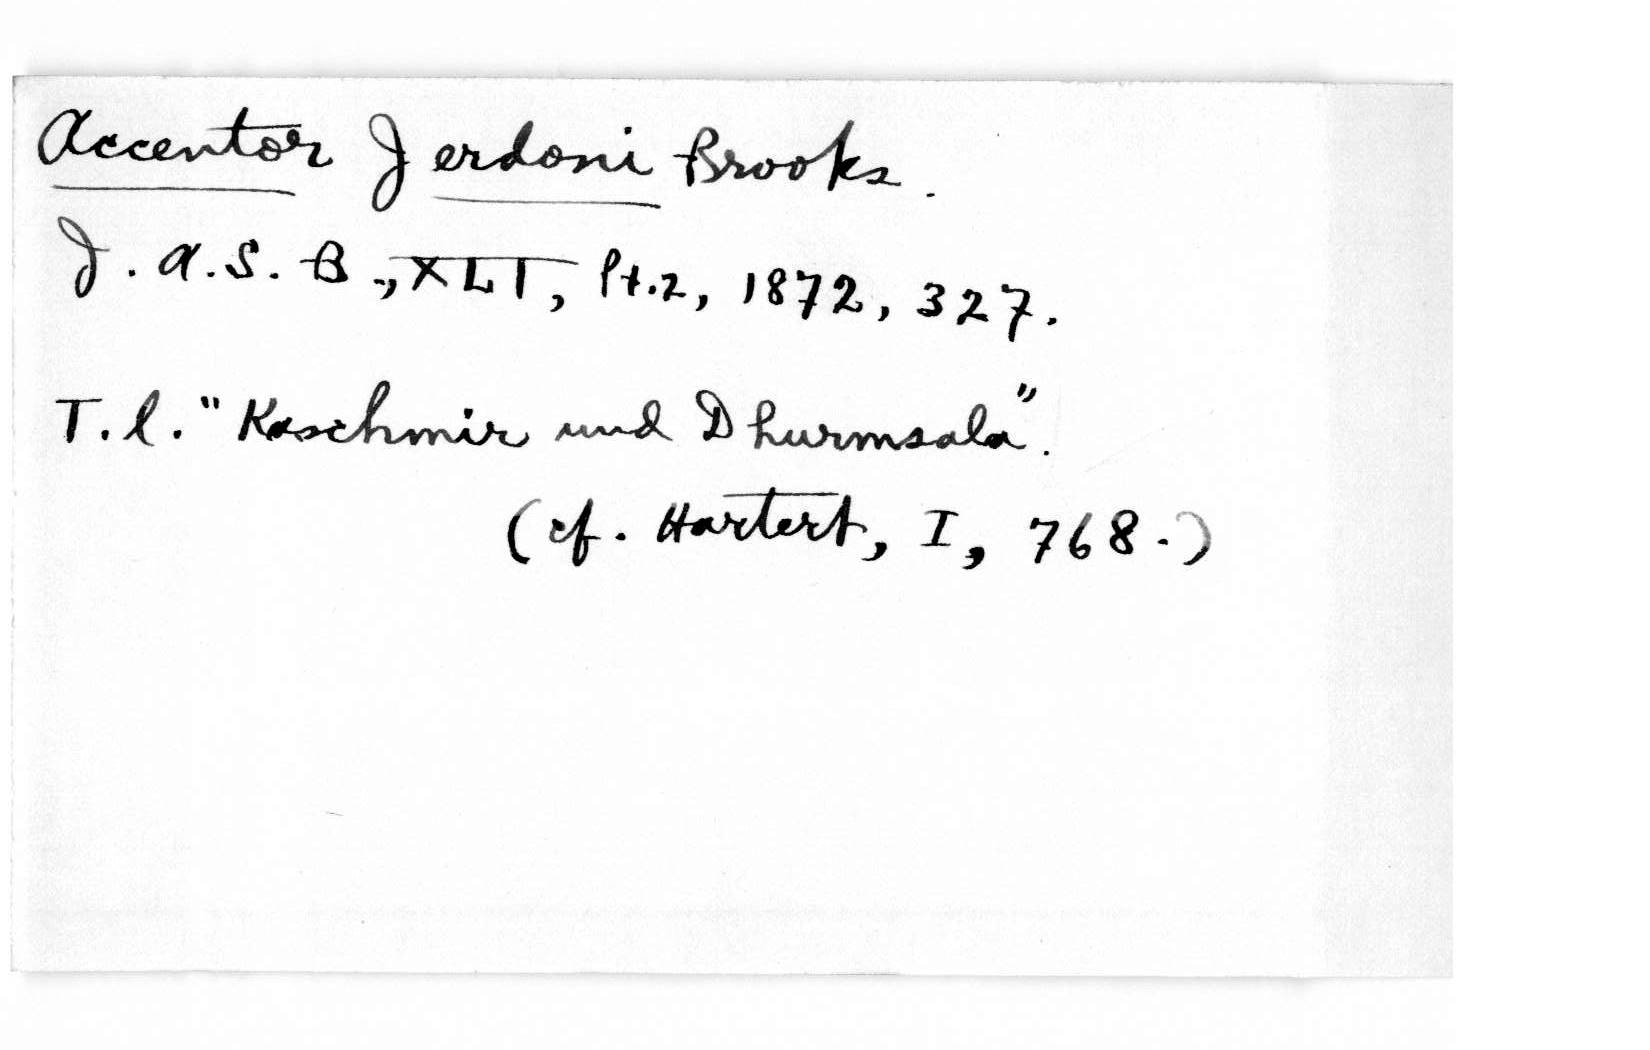 Accentor Jerdoni Brooks.
J. A. S. B., XLI, Pt. 2, 1872, 327.
T. l. "Kaschmir und Dhurmsala".
(cf. Hartert, I, 768.)